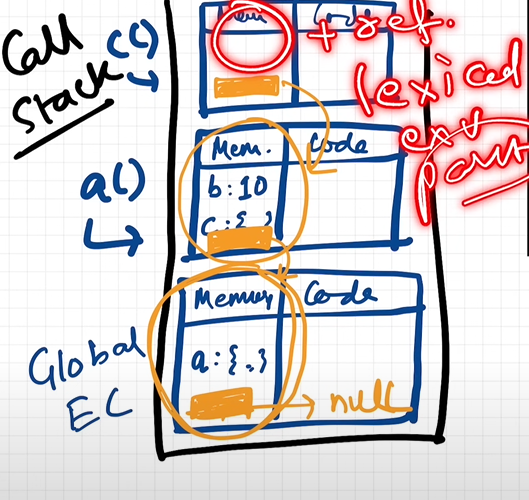 Call
Stack
c()
Mem
Code
+ ref.
lexical
env
part
a()
Mem.
Code
b:10
c:{
Global
EC
Memory
Code
a:{..}
null